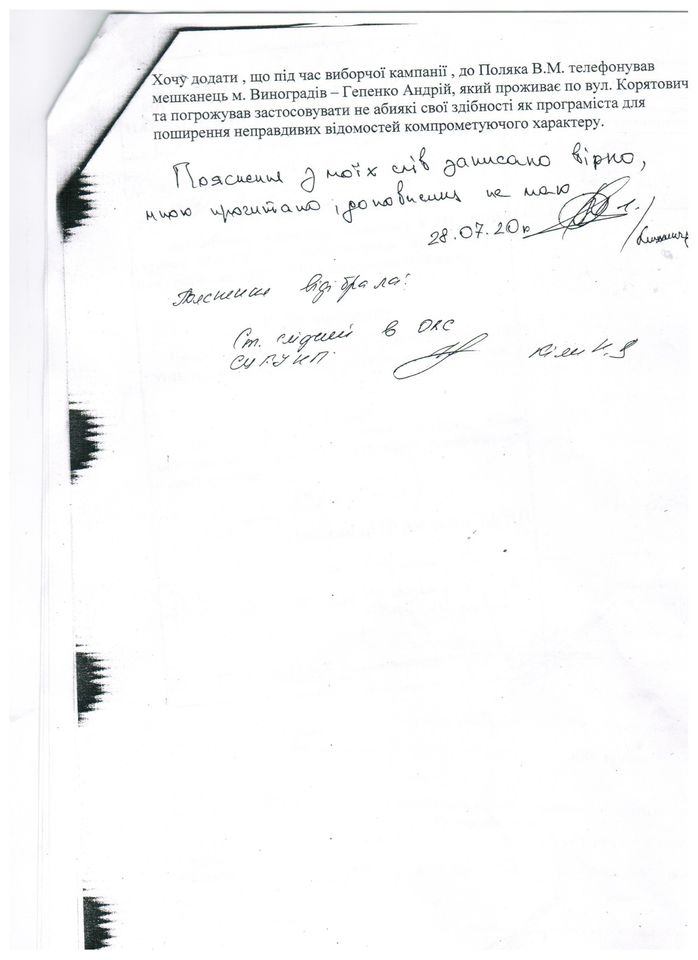 Хочу додати , що під час виборчої кампанії , до Поляка В.М. телефонував
мешканець м. Виноградів – Гепенко Андрій, який проживає по вул. Корятович
та погрожував застосовувати не абиякі свої здібності як програміста для
поширення неправдивих відомостей компрометуючого характеру.
Пояснення з моїх слів записано вірно,
мною прочитано і доповнень не маю
28.07.20
Пояснення відібрала:
Ст. слідчий в